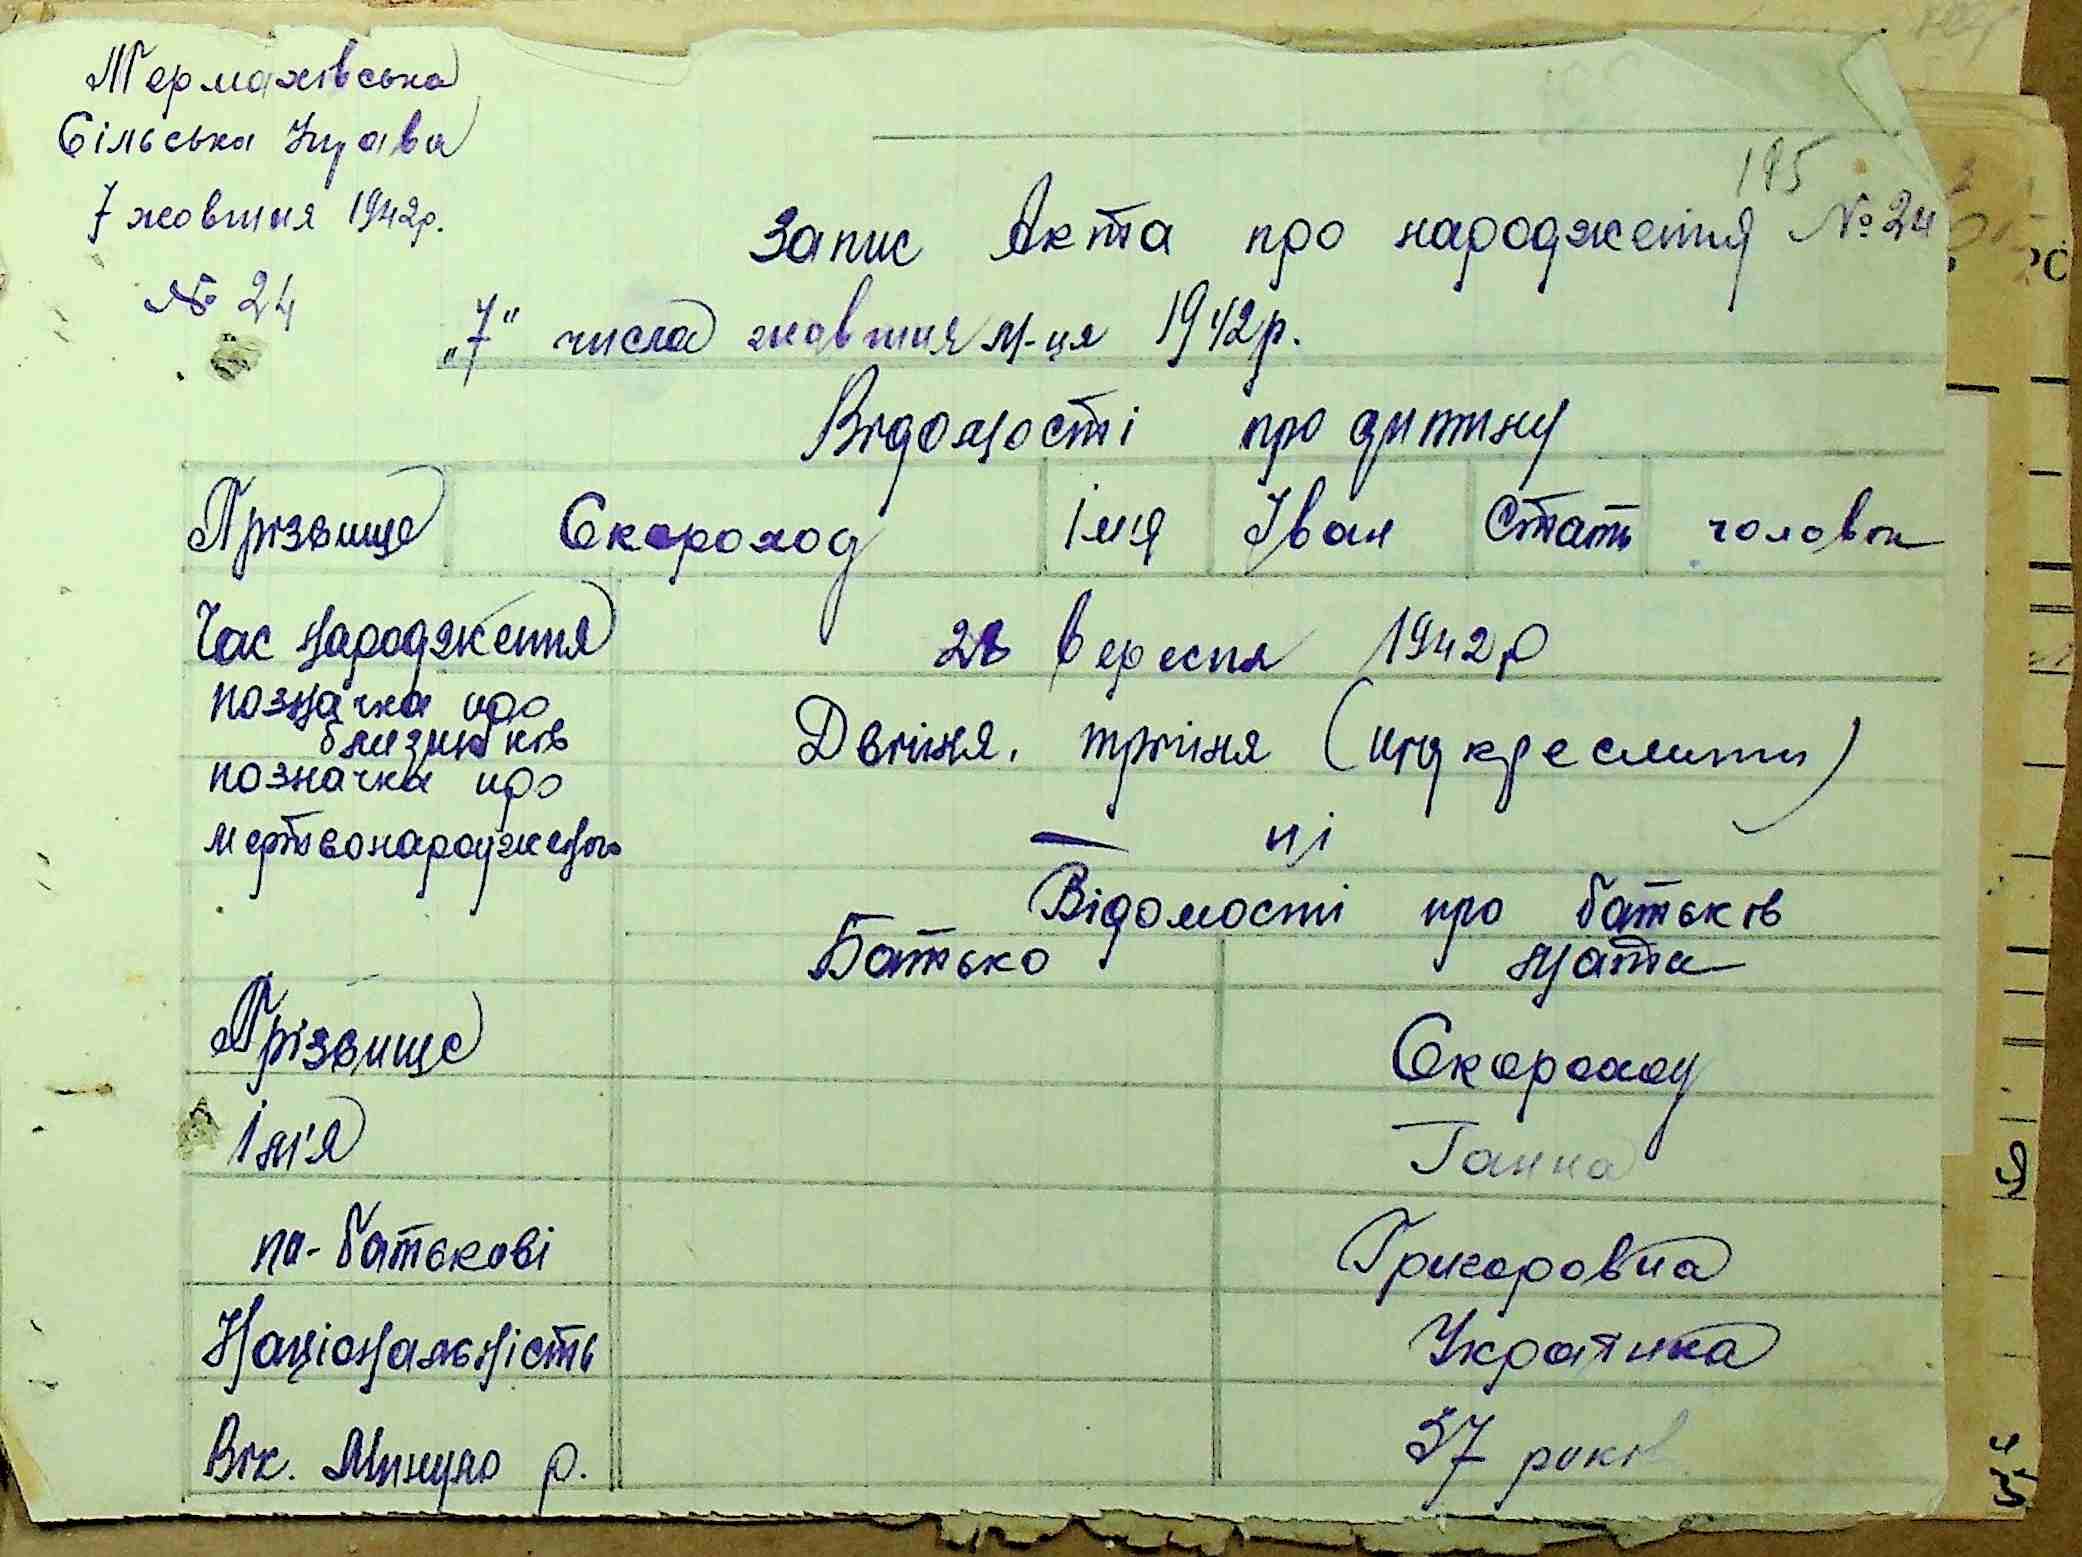 Термахівська
Сільська Управа
7 жовтня 1942р.
№ 24
195
Запис Акта про народження № 24
„7" числа жовтня м-ця 1942р.
Відомості про дитину
Прізвище Скороход Імя Іван Стать чоловіч
Час народження 28 вересня 1942р
позначка про близнюків Двійня, трійня (підкреслити)
позначка про
мертвонародженого — ні
Відомості про батьків
Батько мати
Прізвище Скороход
Ім'я Ганна
по-батькові Григоровна
Національність Українка
Вік. Минуло р. 37 років